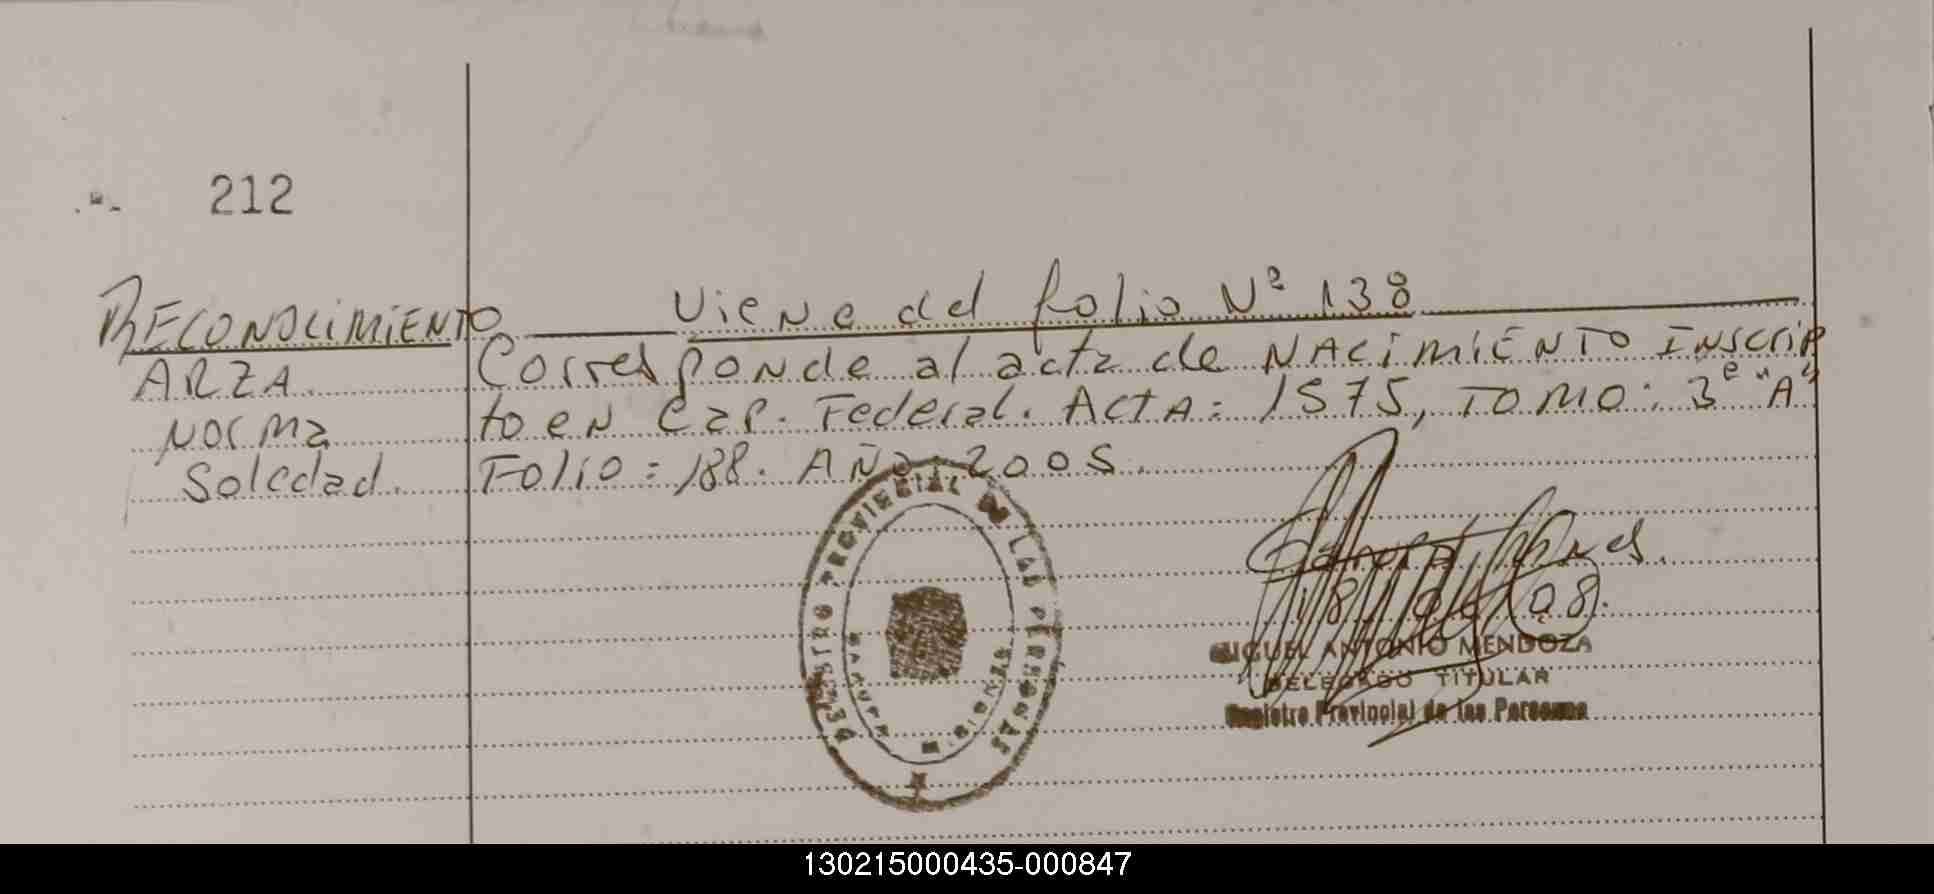 212
RECONOCIMIENTO
ARZA
Norma
Soledad.
Viene del folio Nº 138
Corresponde al acta de NACIMIENTO Inscrip
to en Cap. Federal. Acta: 1575, TOMO: 3º "A"
Folio: 188. Año: 2005.
REGISTRO PROVINCIAL DE LAS PERSONAS
08.
MIGUEL ANTONIO MENDOZA
DELEGADO TITULAR
Registro Provincial de las Personas
130215000435-000847